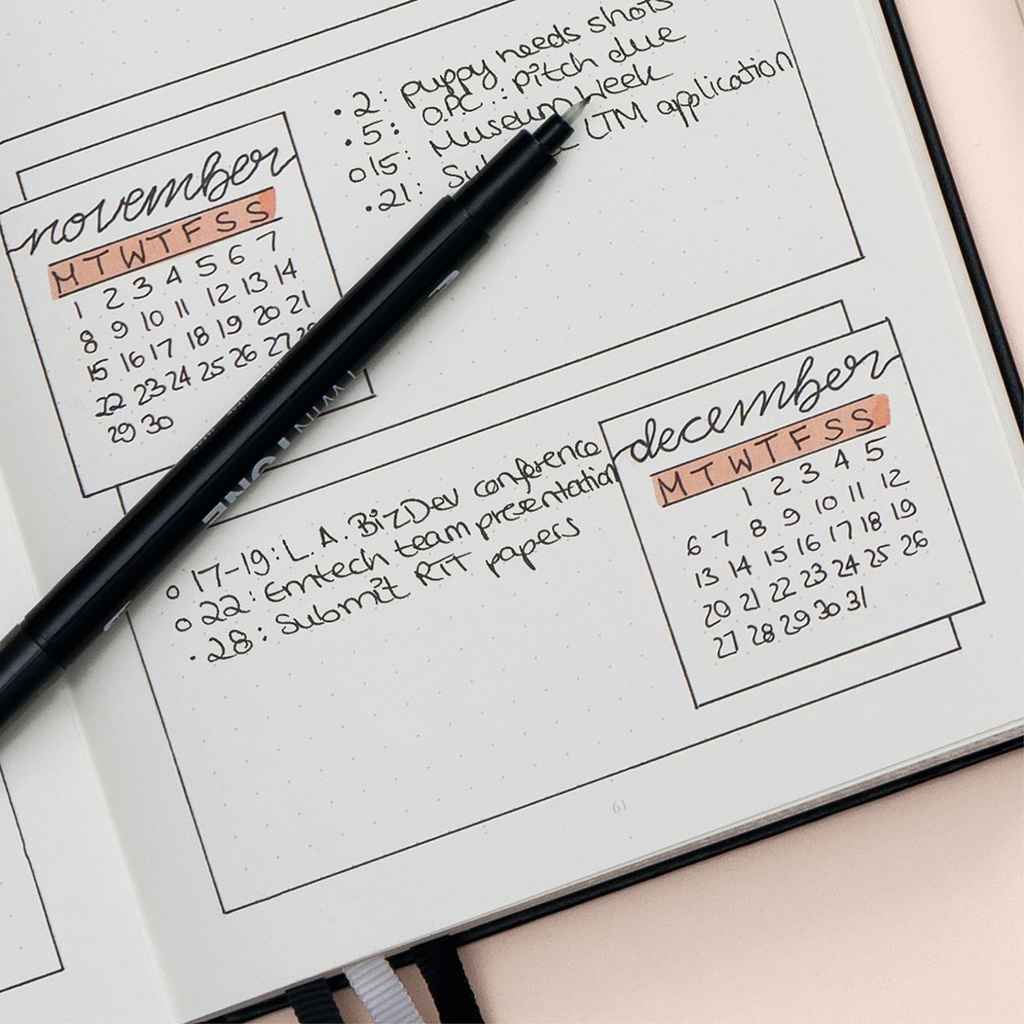 november
M T W T F S S
1 2 3 4 5 6 7
8 9 10 11 12 13 14
15 16 17 18 19 20 21
22 23 24 25 26 27
29 30
• 2: puppy needs shots
• 5: OPC: pitch due
o 15: Museum Week
• 21: LTM application
TWIN TONE
o 17-19: L.A. BizDev conference
o 22: Emtech team presentation
• 28: Submit RIT papers
december
M T W T F S S
1 2 3 4 5
6 7 8 9 10 11 12
13 14 15 16 17 18 19
20 21 22 23 24 25 26
27 28 29 30 31
61